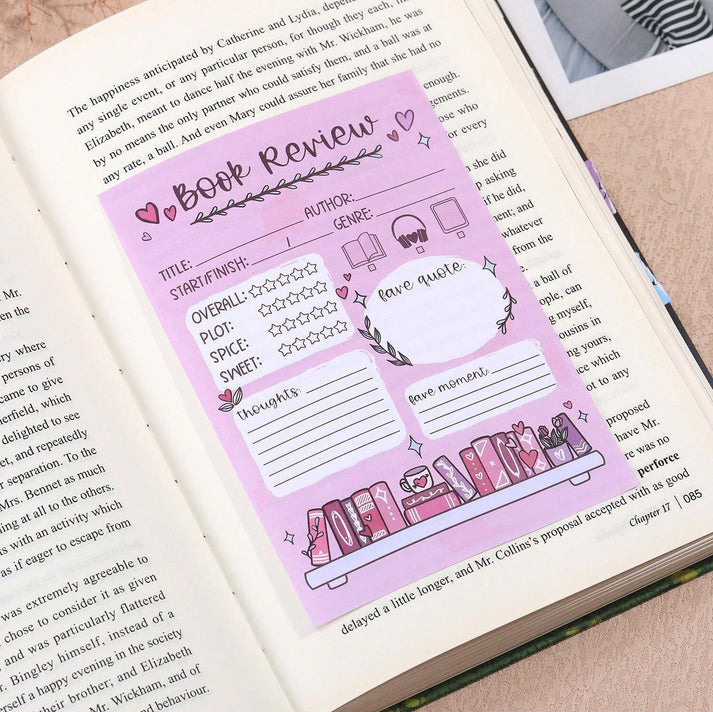 Mr.
en the
ry where
persons of
came to give
erfield, which
delighted to see
et, and repeatedly
r separation. To the
Mrs. Bennet as much
ing at all to the others.
s with an activity which
as if eager to escape from
was extremely agreeable to
chose to consider it as given
and was particularly flattered
r. Bingley himself, instead of a
a happy evening in the society
their brother; and Elizabeth
Mr. Wickham, and of
behaviour.
The happiness anticipated by Catherine and Lydia, depen
any single event, or any particular person, for though they each, li
Elizabeth, meant to dance half the evening with Mr. Wickham, he was
by no means the only partner who could satisfy them, and a ball was at
any rate, a ball. And even Mary could assure her family that she had
enough.
gements.
ose who
or every
she did
p asking
if he did,
ent; and
whatever
from the
a ball of
ople, can
g myself,
ousins in
ing yours,
ce which
t to any
proposed
have Mr.
e was no
perforce
delayed a little longer, and Mr. Collins's proposal accepted with as good
Chapter 17 | 085
Book Review
AUTHOR:
TITLE: GENRE:
START/FINISH: /
OVERALL:
PLOT:
SPICE:
SWEET:
fave quote:
thoughts:
fave moment: